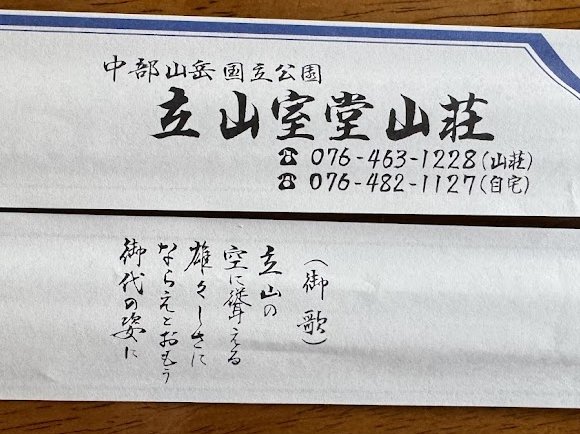 中部山岳国立公園
立山室堂山荘
☎ 076-463-1228(山荘)
☎ 076-482-1127(自宅)
(御歌)
立山の
空に聳える
雄々しさに
ならえとおもう
御代の姿に